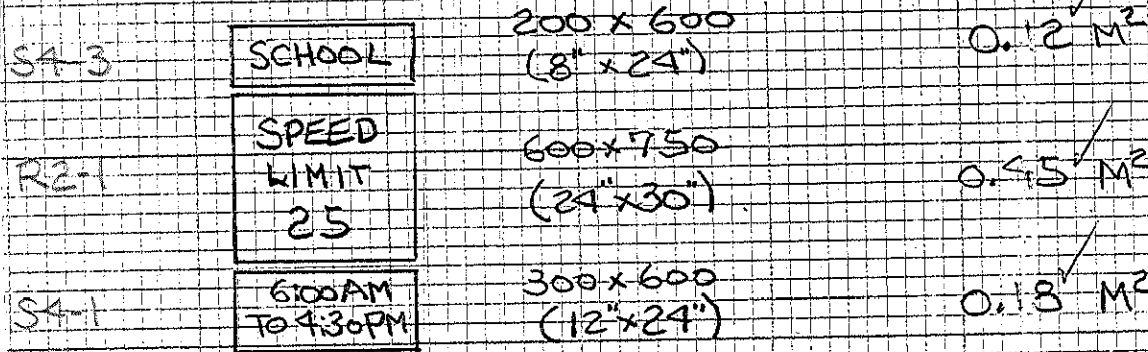 S4-3
SCHOOL
200 x 600
(8" x 24")
0.12 M²
R2-1
SPEED
LIMIT
25
600 x 750
(24" x 30")
0.45 M²
S4-1
6:00 AM
TO 4:30 PM
300 x 600
(12" x 24")
0.18 M²